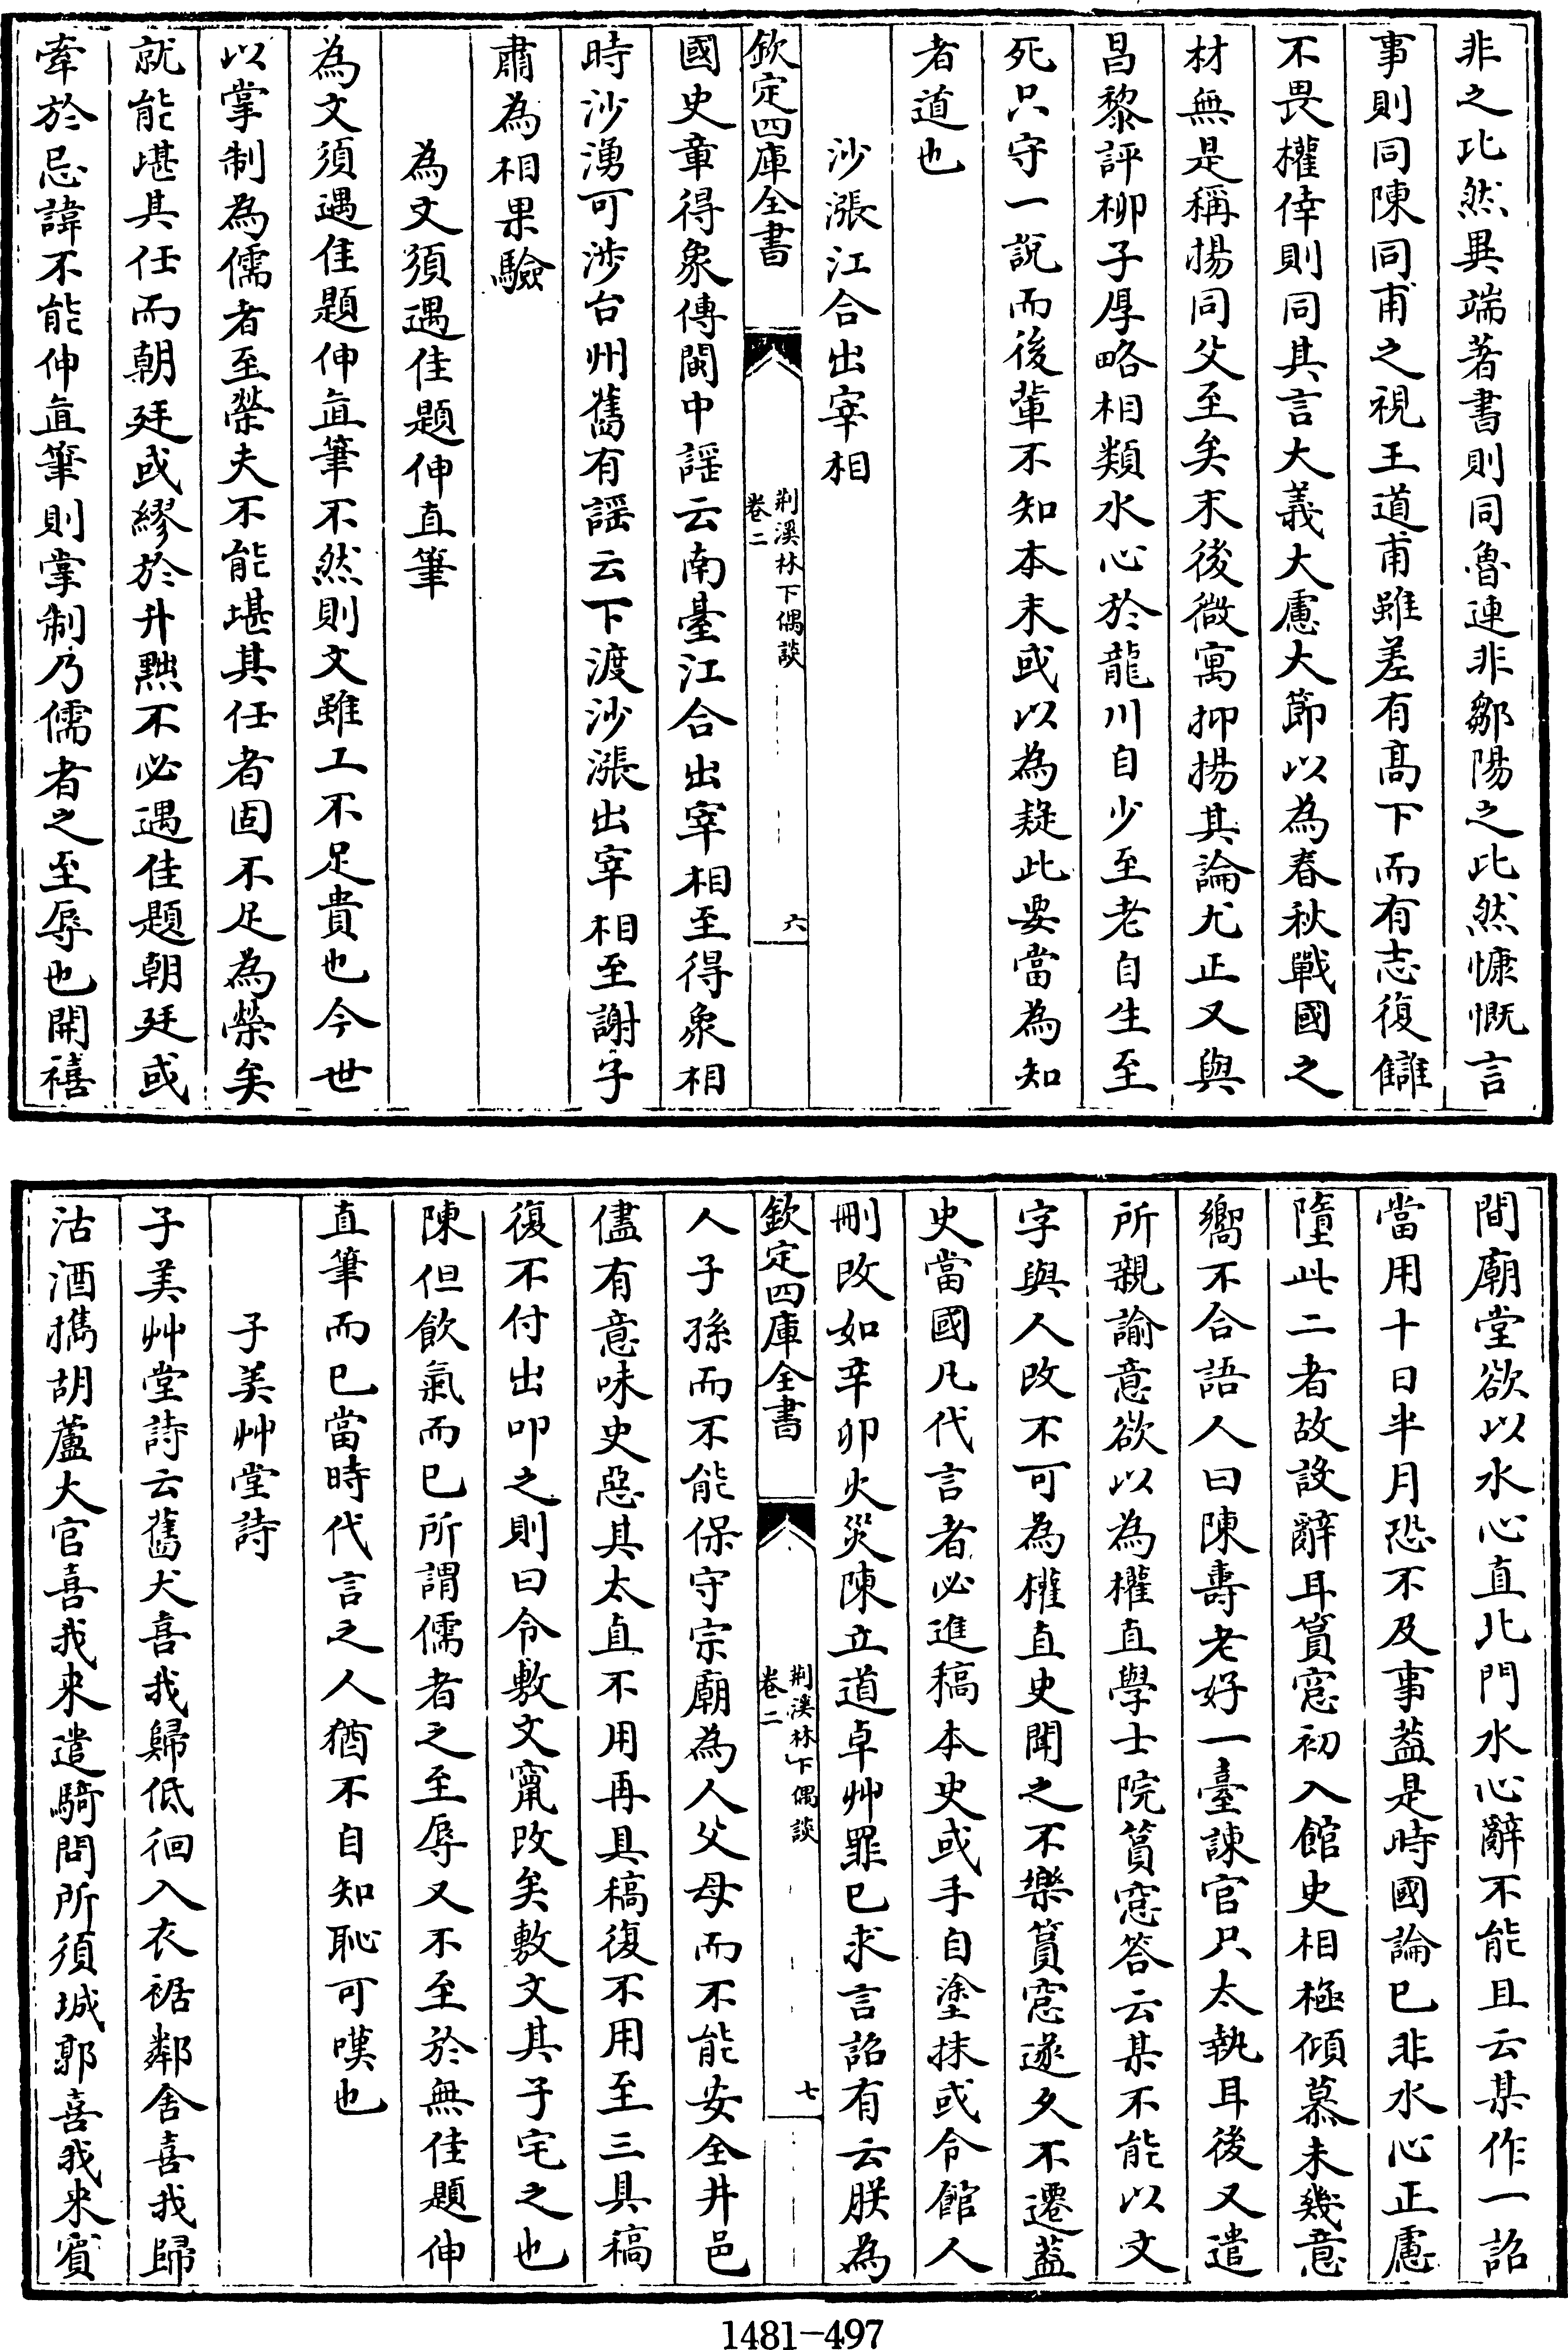 非之比然異端著書則同魯連非鄒陽之比然慷慨言
事則同陳同甫之視王道甫雖差有高下而有志復讎
不畏權倖則同其言大義大慮大節以為春秋戰國之
材無是稱揚同父至矣末後微寓抑揚其論尤正又與
昌黎評柳子厚略相類水心於龍川自少至老自生至
死只守一說而後輩不知本末或以為疑此要當為知
者道也
沙漲江合出宰相
欽定四庫全書
荆溪林下偶談
卷二
六
國史章得象傳閩中謡云南臺江合出宰相至得象相
時沙湧可涉台州舊有謡云下渡沙漲出宰相至謝子
肅為相果驗
為文須遇佳題伸直筆
為文須遇佳題伸直筆不然則文雖工不足貴也今世
以掌制為儒者至榮夫不能堪其任者固不足為榮矣
就能堪其任而朝廷或繆於升黜不必遇佳題朝廷或
牽於忌諱不能伸直筆則掌制乃儒者之至辱也開禧
間廟堂欲以水心直北門水心辭不能且云某作一詔
當用十日半月恐不及事葢是時國論已非水心正慮
墮此二者故設辭耳篔窓初入館史相極傾慕未幾意
嚮不合語人曰陳壽老好一臺諫官只太執耳後又遣
所親諭意欲以為權直學士院篔窓答云某不能以文
字與人改不可為權直史聞之不樂篔窓遂久不遷葢
史當國凡代言者必進稿本史或手自塗抹或令館人
刪改如辛卯火災陳立道卓艸罪已求言詔有云朕為
欽定四庫全書
荆溪林下偶談
卷二
七
人子孫而不能保守宗廟為人父母而不能安全井邑
儘有意味史惡其太直不用再具稿復不用至三具稿
復不付出叩之則曰令敷文甯改矣敷文其子宅之也
陳但飲氣而已所謂儒者之至辱又不至於無佳題伸
直筆而已當時代言之人猶不自知恥可嘆也
子美艸堂詩
子美艸堂詩云舊犬喜我歸低徊入衣裾鄰舍喜我歸
沽酒㩦胡蘆大官喜我來遣騎問所須城郭喜我来賔
1481-497